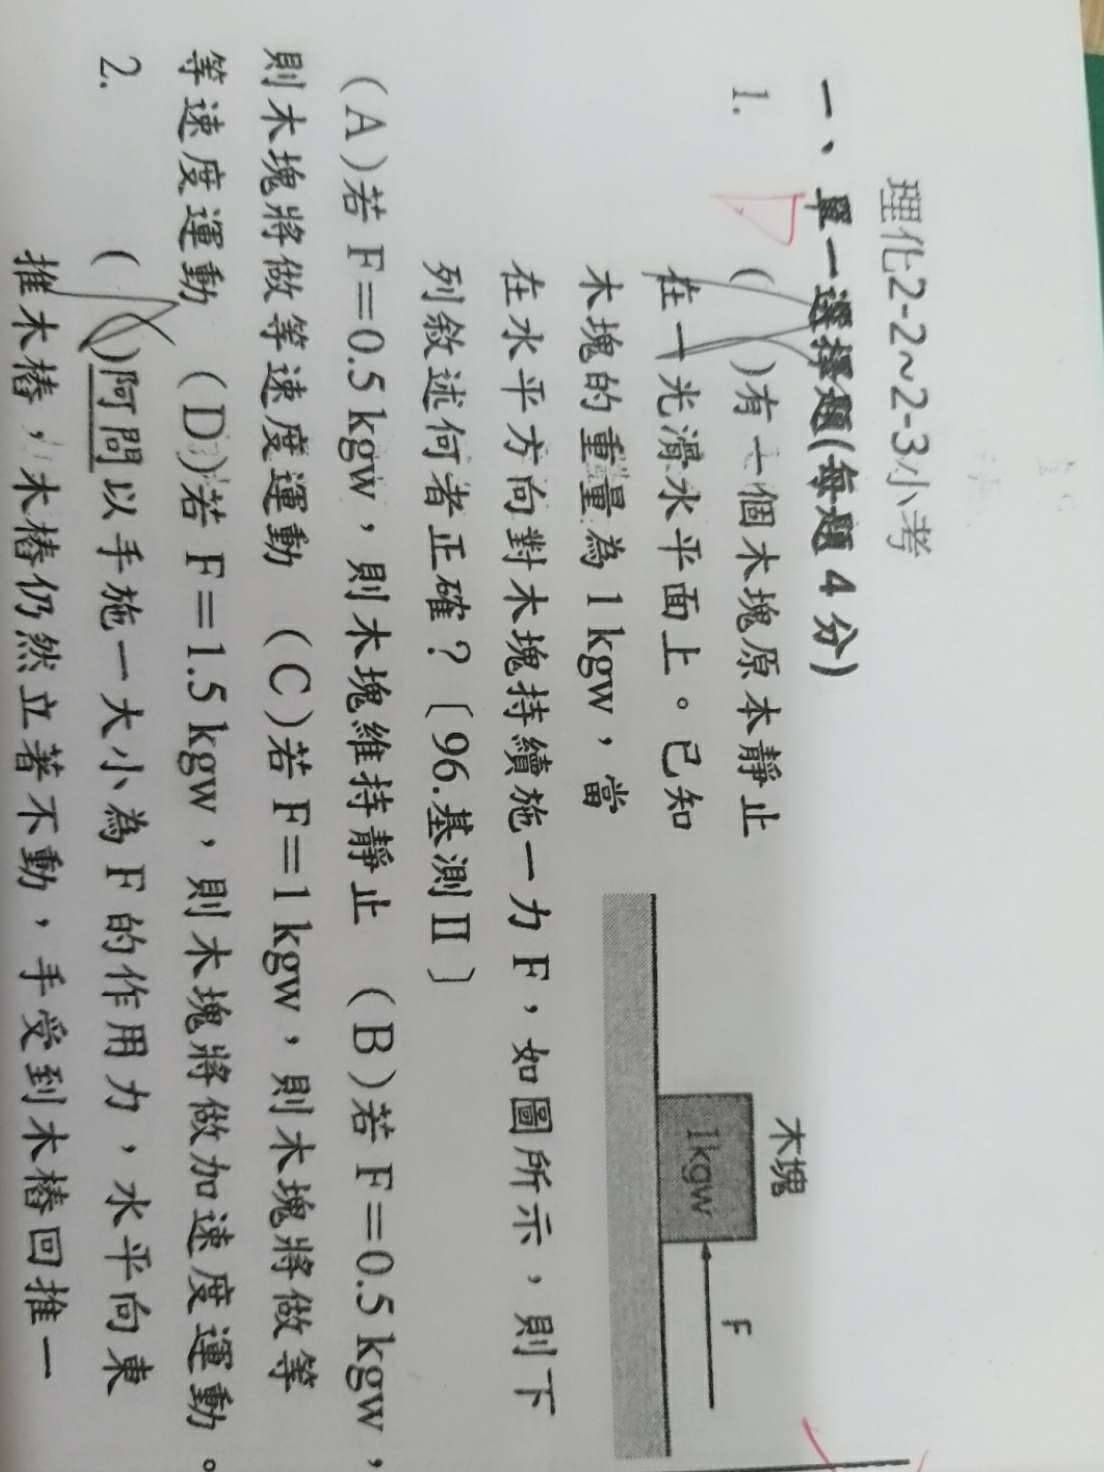 理化2-2~2-3小考
一、單一選擇題(每題 4 分)
1. ( )有一個木塊原本靜止
在一光滑水平面上。已知
木塊的重量為 1 kgw，當
在水平方向對木塊持續施一力 F，如圖所示，則下
列敘述何者正確？〔96.基測Ⅱ〕
(A)若 F＝0.5 kgw，則木塊維持靜止 (B)若 F＝0.5 kgw，
則木塊將做等速度運動 (C)若 F＝1 kgw，則木塊將做等
等速度運動 (D)若 F＝1.5 kgw，則木塊將做加速度運動。
2. ( )阿問以手施一大小為 F 的作用力，水平向東
推木樁，木樁仍然立著不動，手受到木樁回推一
木塊
1kgw
F